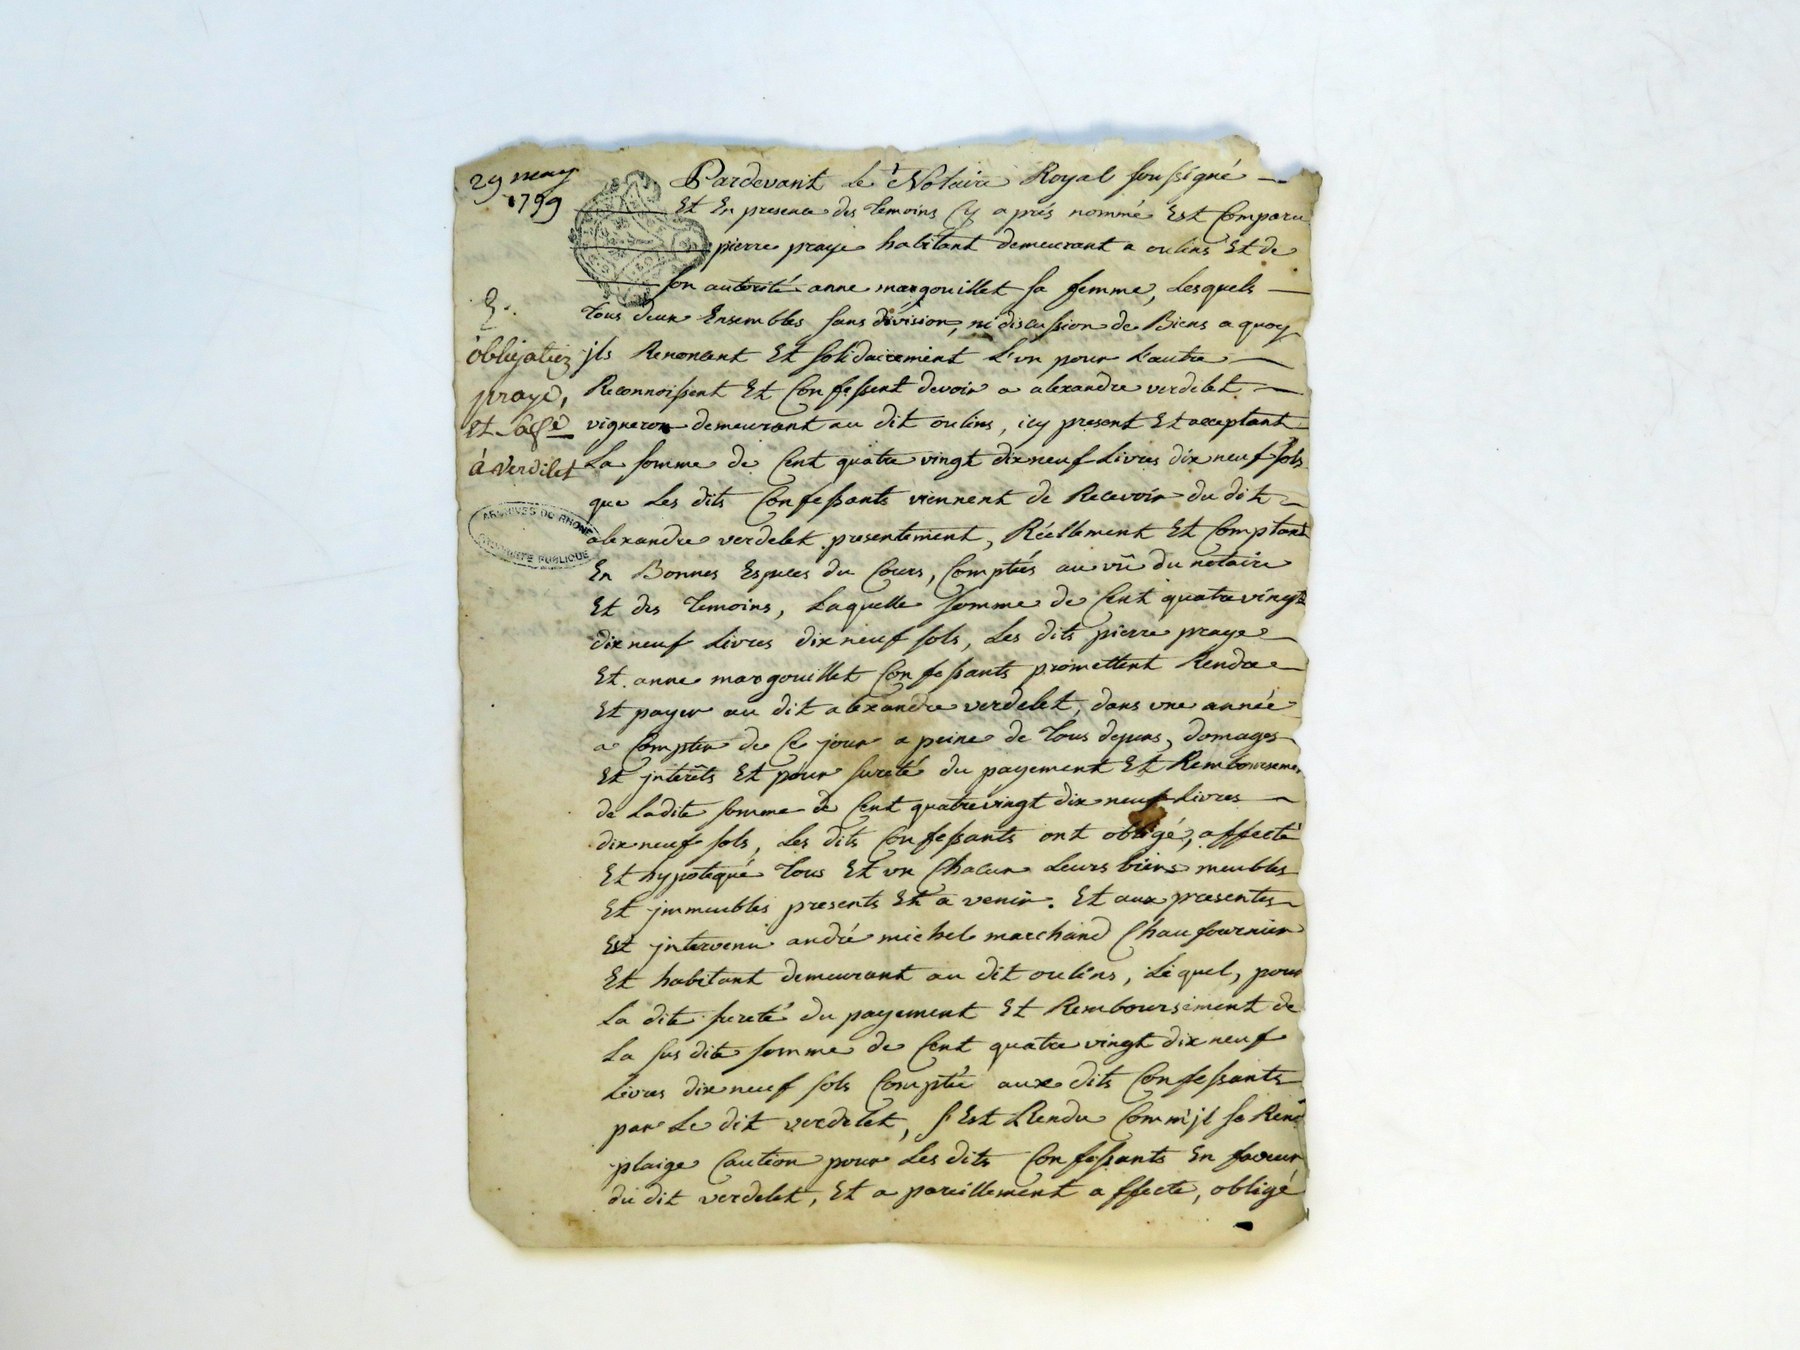 29 may
1799
Pardevant Le Notaire Royal soussigné
Et En presence des Temoins Cy aprés nommé Est Comparu
pierre praye habitant demeurant a oulins Et de
son autorité anne margouillet sa femme, Lesquels
Tous deux Ensembles sans division, ni discussion de Biens a quoy
jls Renoncent Et solidairement L'un pour L'autre
Reconnoissent Et Confessent devoir a alexandre verdelet
vigneron demeurant au dit oulins, icy present Et acceptant
La somme de Cent quatre vingt dix neuf Livres dix neuf sols
que Les dits Confessants viennent de Recevoir du dit
alexandre verdelet presentement, Réellement Et Comptant
En Bonnes Especes du Cours, Comptés au vû du notaire
Et des Temoins, Laquelle somme de Cent quatre vingt
dix neuf Livres dix neuf sols, Les dits pierre praye
Et anne margouillet Confessants promettent Rendre
Et payer au dit alexandre verdelet, dans une année
a Compter de Ce jour a peine de Tous depens, domages
Et jnterêts Et pour sureté du payement Et Remboursemen
de Ladite somme de Cent quatre vingt dix neuf Livres
dix neuf sols, Les dits Confessants ont obligé, affecté
Et hypotequé Tous Et un Chacun Leurs biens meubles
Et jmmeubles presents Et a venir. Et aux presentes
Est jntervenu andré michel marchand Chaufournier
Et habitant demeurant au dit oulins, Lequel, pour
La dite sureté du payement Et Remboursement de
La sus dite somme de Cent quatre vingt dix neuf
Livres dix neuf sols Comptée aux dits Confessants
par Le dit verdelet, s'Est Rendu Comm'jl se Rend
plaige Caution pour Les dits Confessants En faveur
du dit verdelet, Et a pareillement affecté, obligé
obligation
praye,
Et sa fe
à Verdelet
ARCHIVES DU RHONE
PUBLIQUE